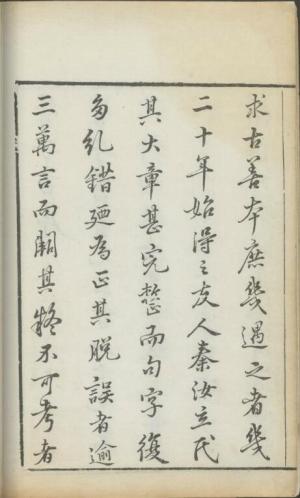 求古善本庶幾遇之者幾
二十年始得之友人秦汝立氏
其大章甚完整而句字復
多乱錯廼為正其脫誤者逾
三萬言而闕其終不可考者